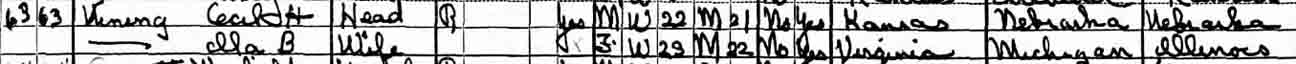 63 63 Vining Cecil H Head R yes M W 22 M 21 No Yes Kansas Nebraska Nebraska
Illa B Wife F W 23 M 22 No Yes Virginia Michigan Illinois